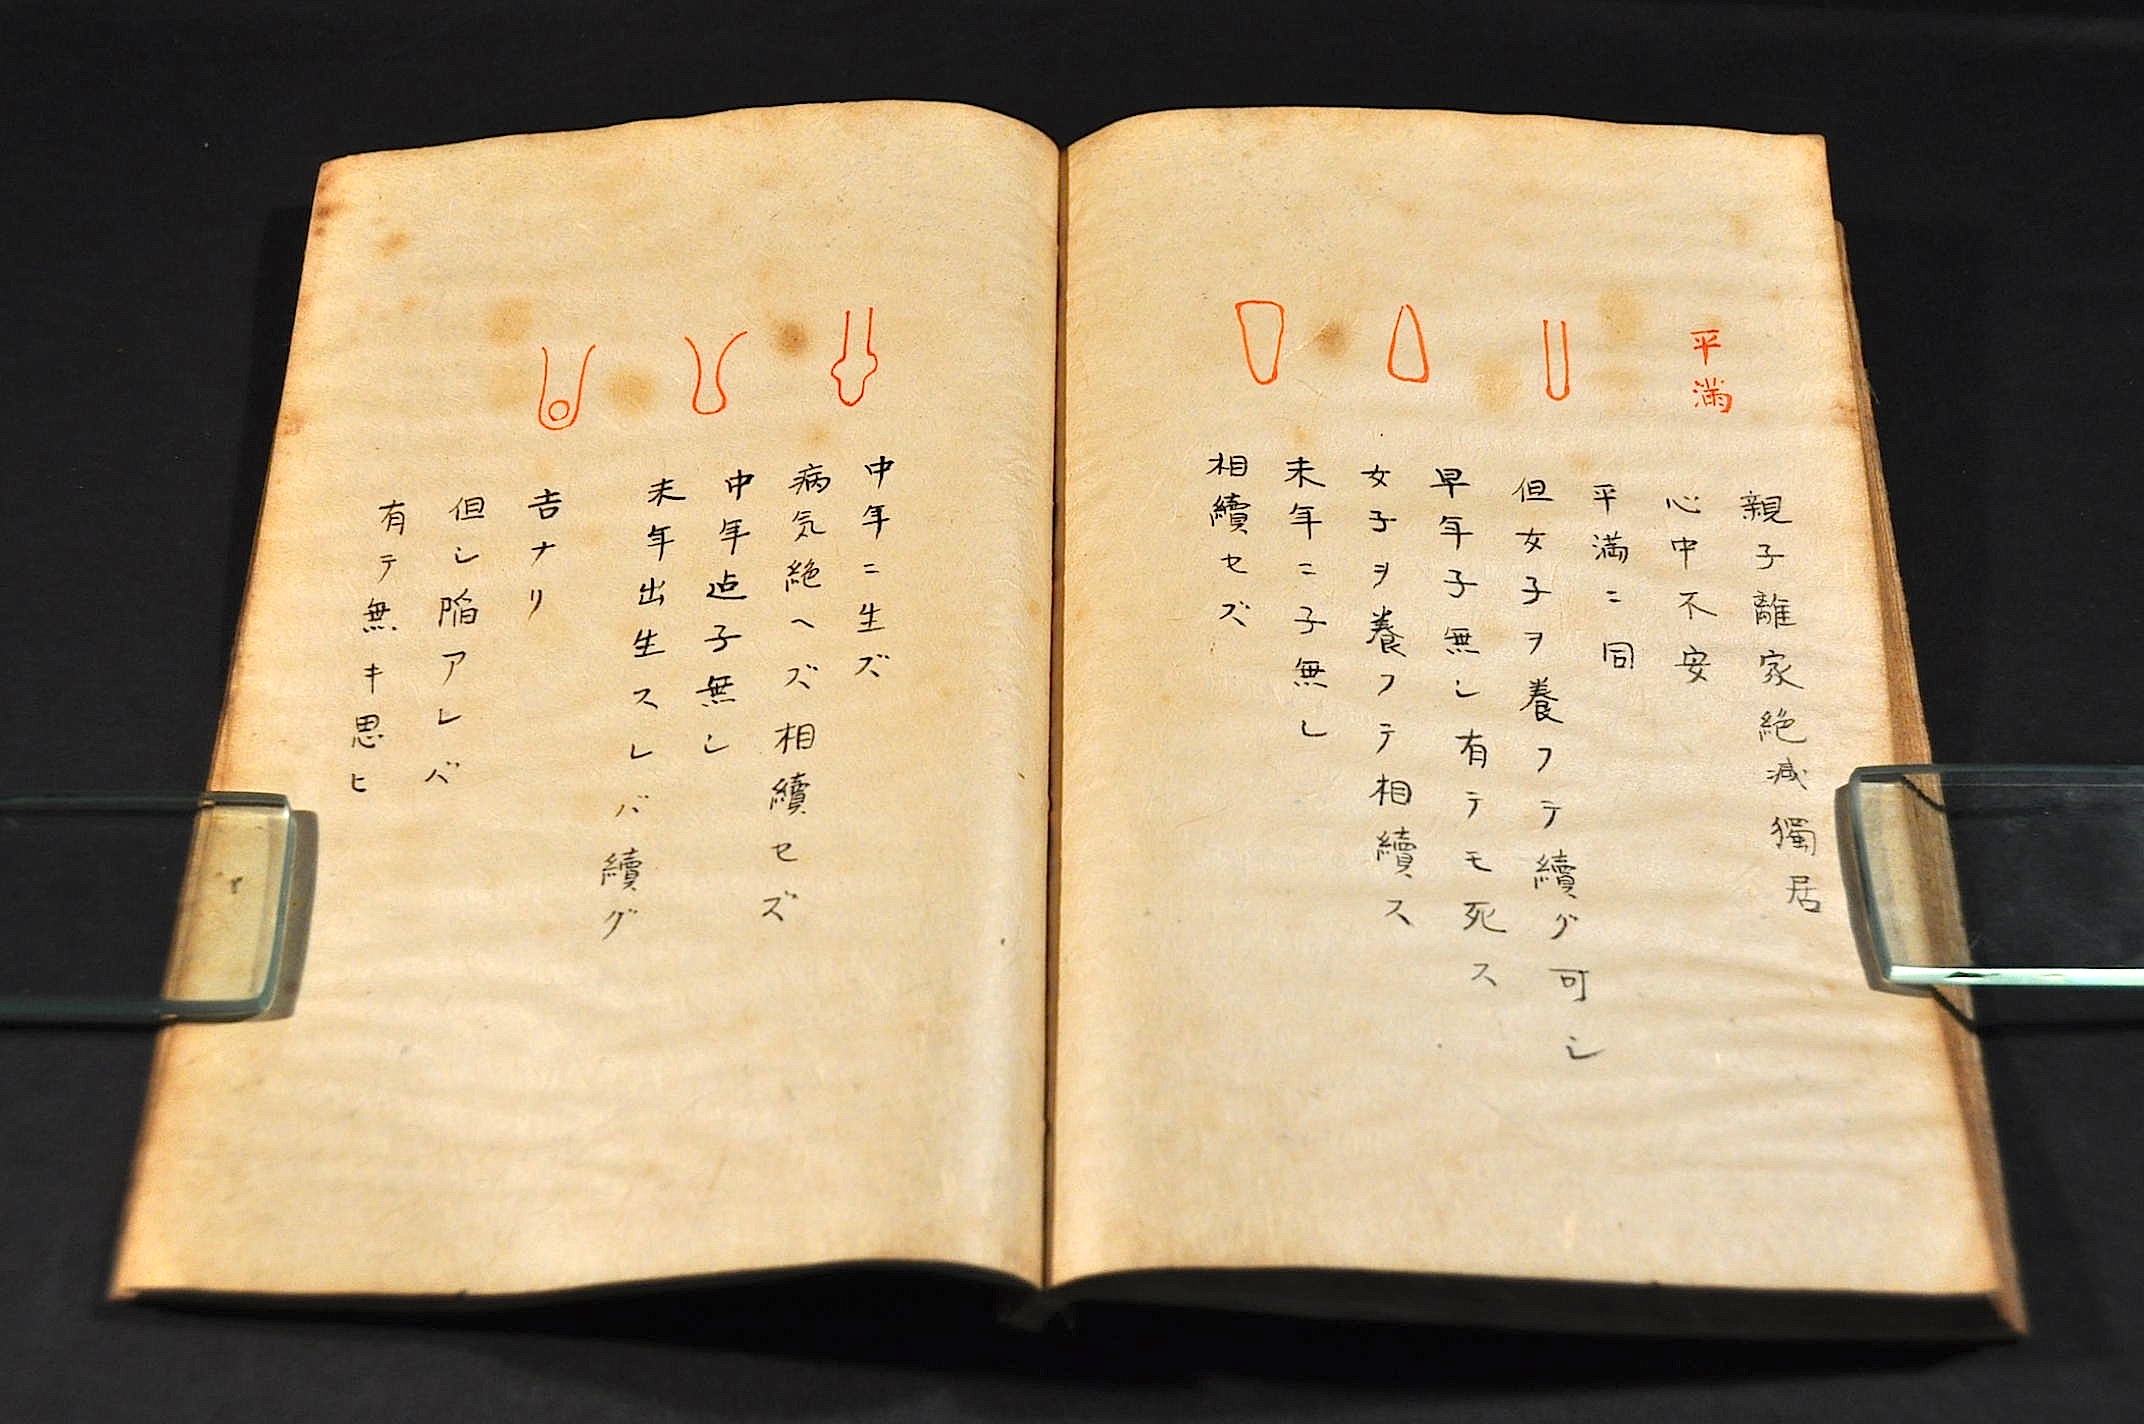 平満
親子離家絶滅獨居
心中不安
平満ニ同
但女子ヲ養フテ續グ可シ
早年子無シ有テモ死ス
女子ヲ養フテ相續ス
末年ニ子無シ
相續セズ
中年ニ生ズ
病気絶ヘズ相續セズ
中年迠子無シ
末年出生スレバ續グ
吉ナリ
但シ陥アレバ
有テ無キ思ヒ